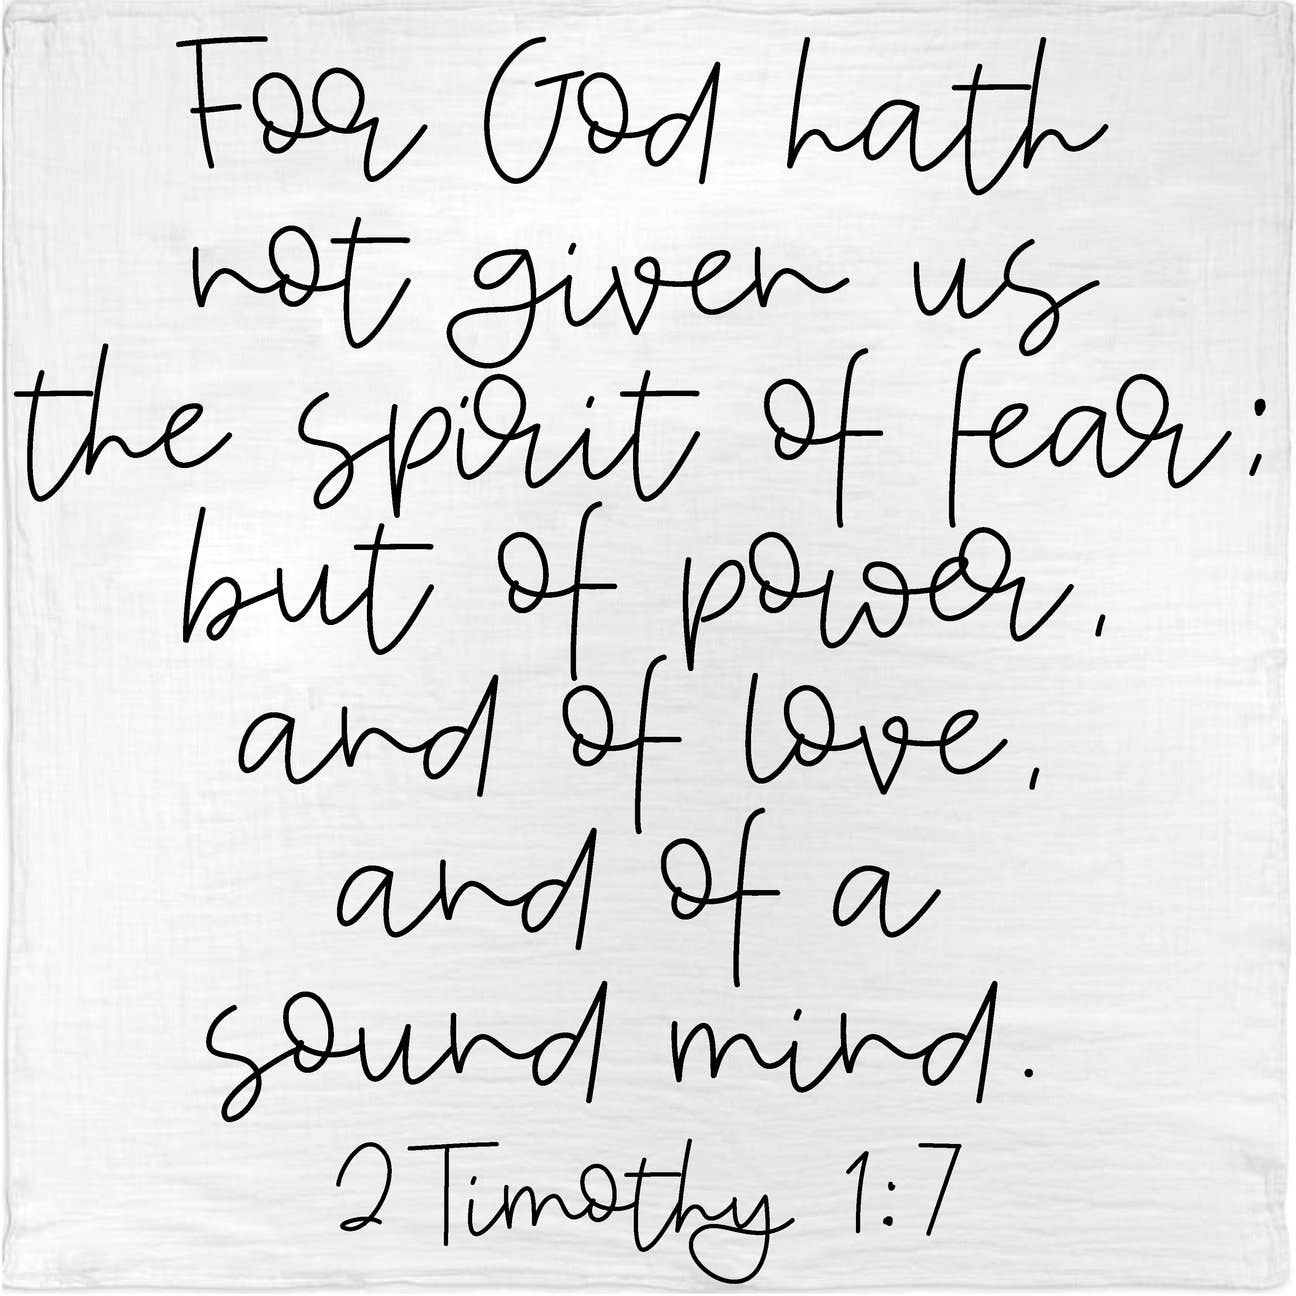 For God hath
not given us
the spirit of fear;
but of power,
and of love,
and of a
sound mind.
2 Timothy 1:7